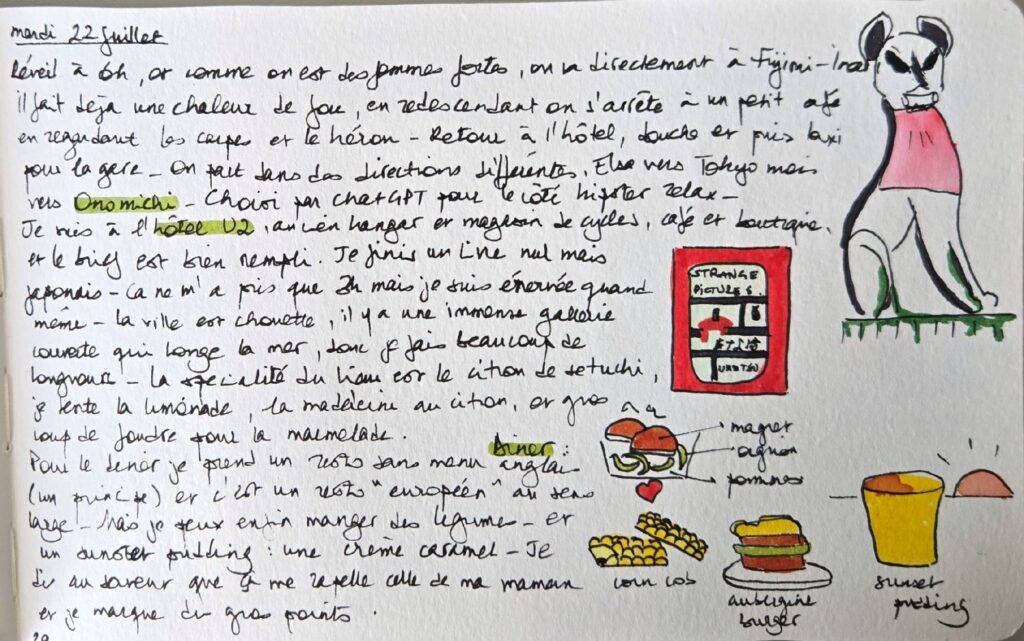 mardi 22 juillet
Réveil à 6h, et comme on est des femmes fortes, on va directement à Fujimi-Inari
il fait déjà une chaleur de fou, en redescendant on s'arrête à un petit café
en regardant les carpes et le héron - Retour à l'hôtel, douche et puis taxi
pour la gare - On part dans des directions différentes, Elsa vers Tokyo mais
vers Onomichi - Choisi par chatGPT pour le côté hipster relax -
Je vais à l'hôtel U2, ancien hangar et magasin de cycles, café et boutique,
et le brief est bien rempli. Je finis un livre nul mais
japonais - Ca ne m'a pris que 2h mais je suis énervée quand
même - La ville est chouette, il y a une immense gallerie
couverte qui longe la mer, donc je fais beaucoup de
longueurs - La spécialité du lieu est le citron de setuchi,
je tente la limonade, la madeleine au citron, et gros
coup de foudre pour la marmelade.
Diner :
Pour le diner je prend un resto sans menu anglais
(un principe) et c'est un resto "européen" au sens
large - Mais je peux enfin manger des légumes - et
un sunset pudding : une crème caramel - Je
dis au serveur que ça me rappelle celle de ma maman
et je marque des gros points.
STRANGE
PICTURES
UKETSU
magret
oignon
pommes
corn cob
aubergine
burger
sunset
pudding